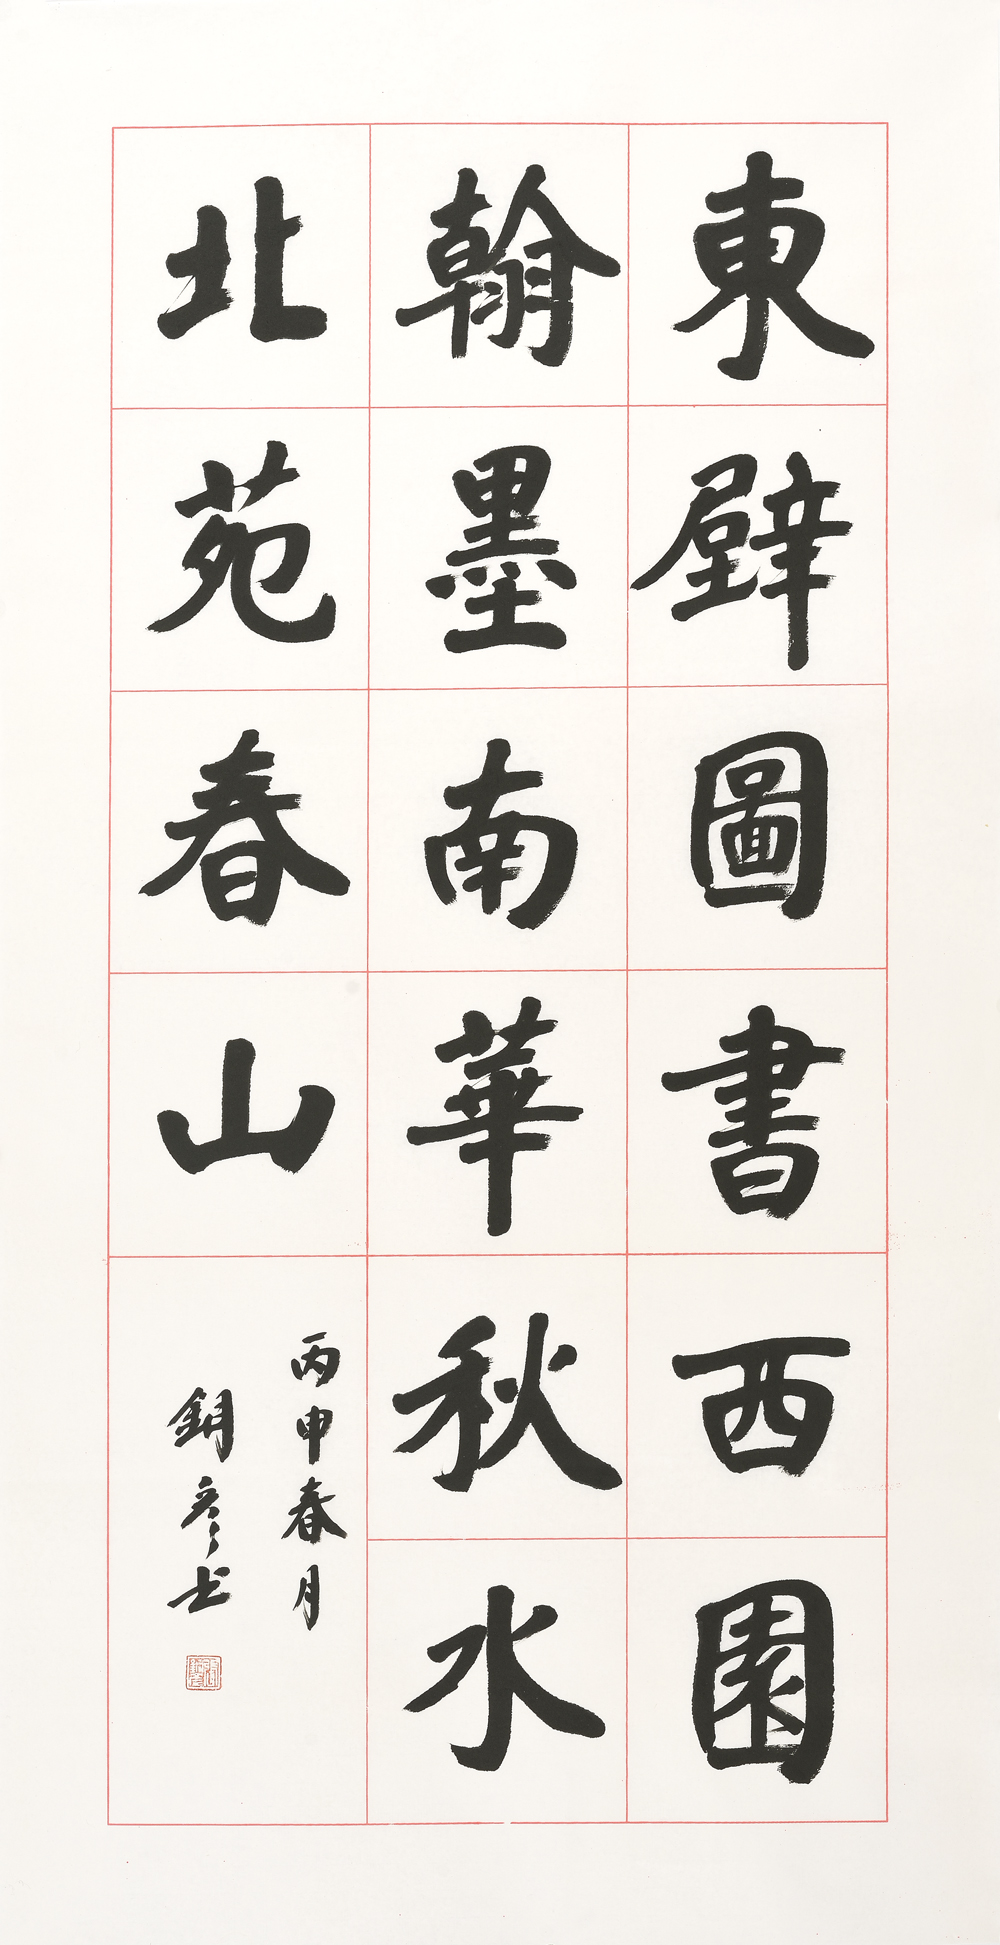 東壁圖書西園
翰墨南華秋水
北苑春山
丙申春月
鈅彦书